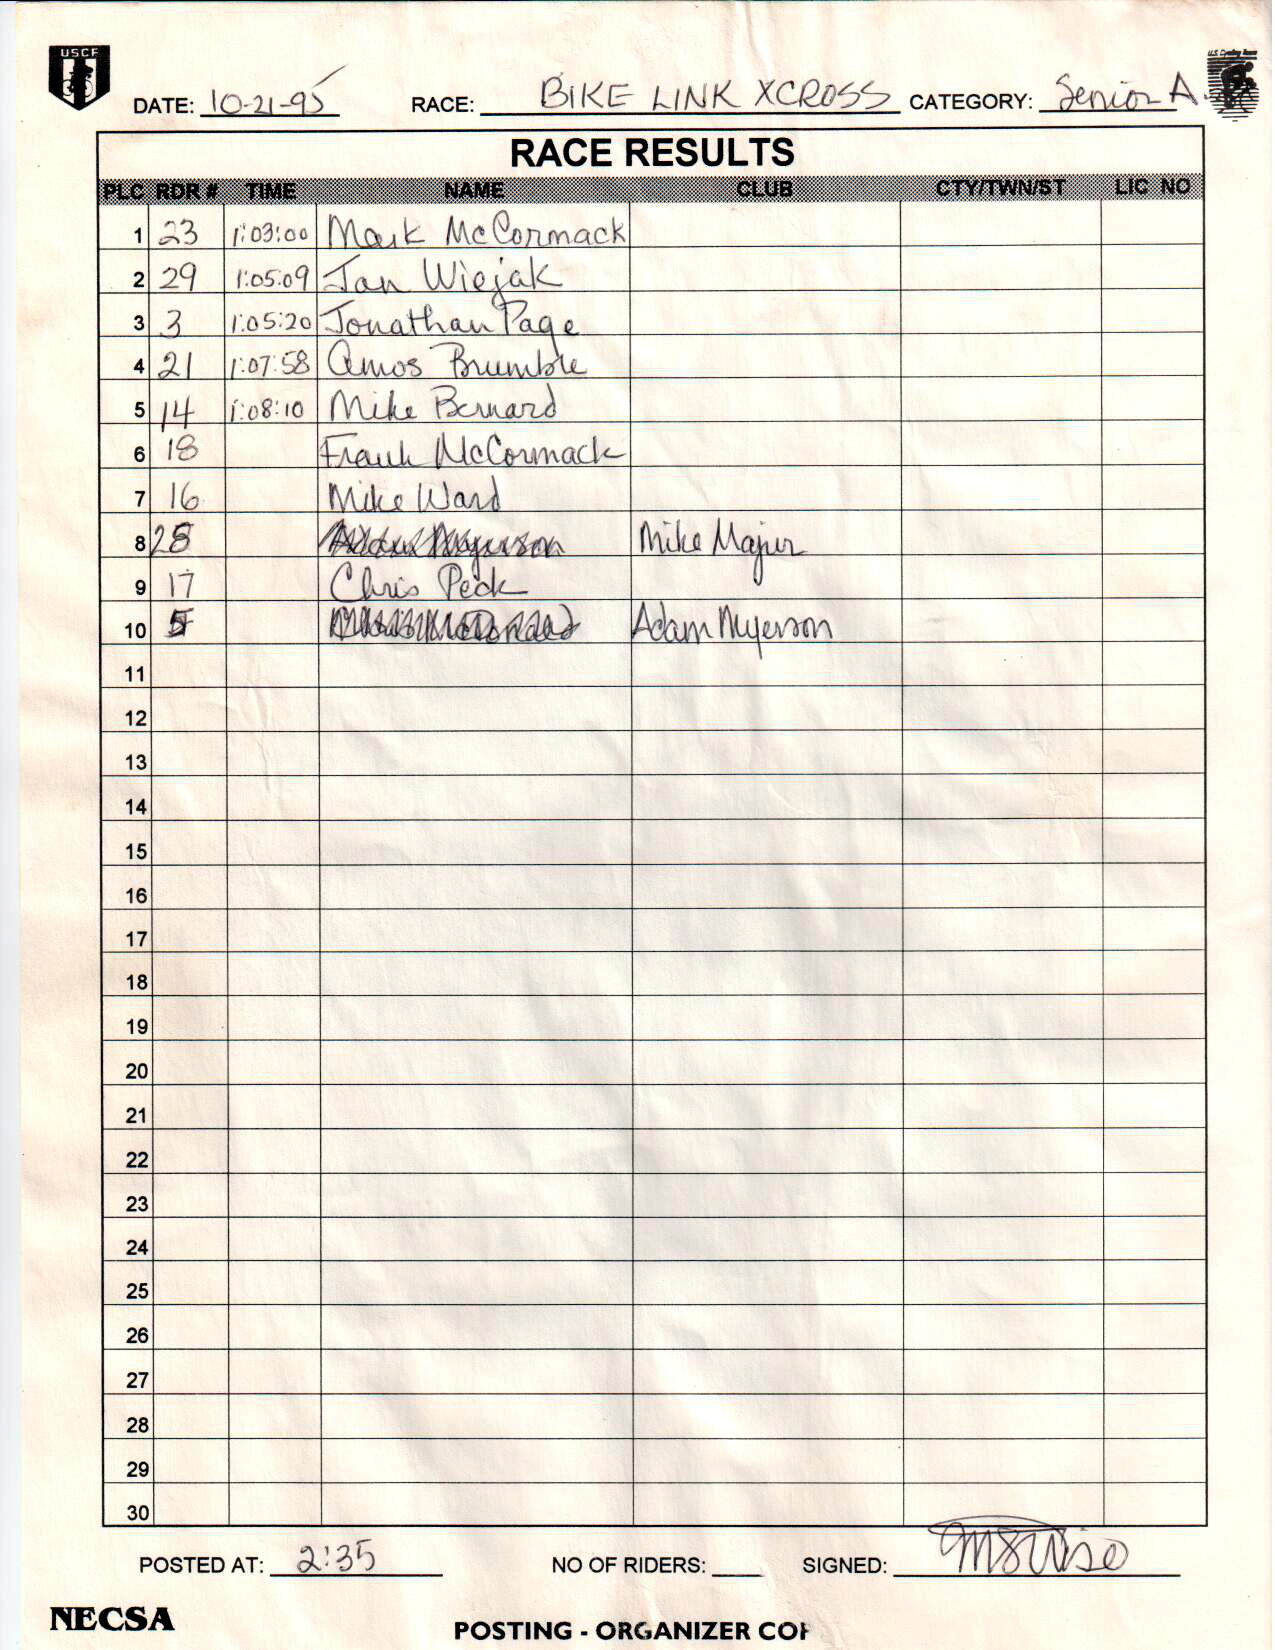 USCF
DATE: 10-21-95 RACE: BIKE LINK XCROSS CATEGORY: Senior A
RACE RESULTS
PLC RDR # TIME NAME CLUB CTY/TWN/ST LIC NO
1 23 1:03:00 Mark McCormack
2 29 1:05:09 Jan Wiejak
3 3 1:05:20 Jonathan Page
4 21 1:07:58 Amos Brumble
5 14 1:08:10 Mike Bernard
6 18 Frank McCormack
7 16 Mike Ward
8 28 Mike Majur
9 17 Chris Peck
10 5 Adam Myerson
11
12
13
14
15
16
17
18
19
20
21
22
23
24
25
26
27
28
29
30
POSTED AT: 2:35 NO OF RIDERS: SIGNED:
NECSA
POSTING - ORGANIZER COP